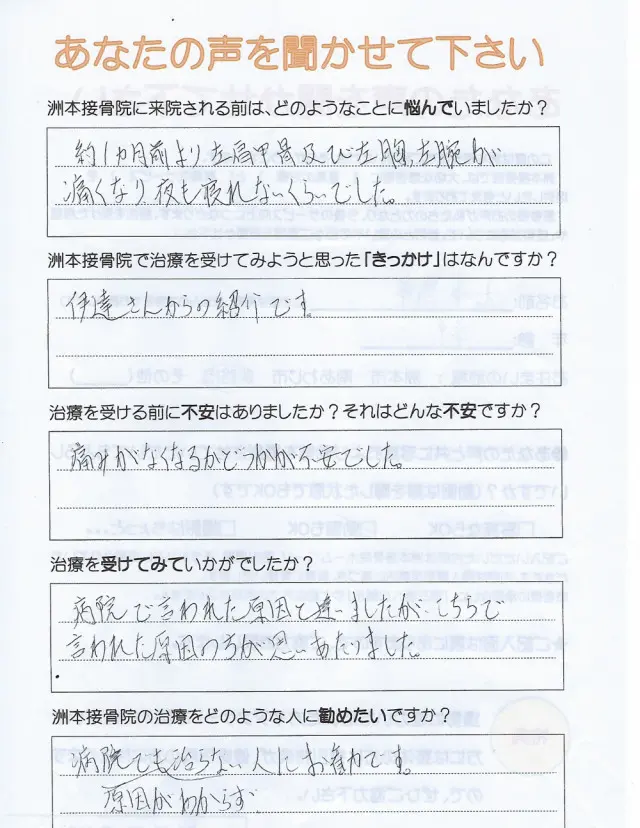 あなたの声を聞かせて下さい
洲本接骨院に来院される前は、どのようなことに悩んでいましたか？
約1カ月前より左肩甲骨及び左胸、左腕が
痛くなり夜も寝れないくらいでした。
洲本接骨院で治療を受けてみようと思った「きっかけ」はなんですか？
伊達さんからの紹介です。
治療を受ける前に不安はありましたか？それはどんな不安ですか？
痛みがなくなるかどうかが不安でした。
治療を受けてみていかがでしたか？
病院で言われた原因と違いましたが、こちらで
言われた原因の方が思いあたりました。
洲本接骨院の治療をどのような人に勧めたいですか？
病院でも治らない人にお勧めです。
原因がわからず